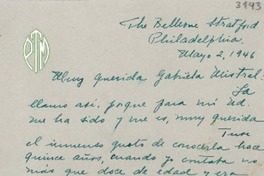 3943
PTM
The Bellevue Stratford
Philadelphia.
Mayo 2, 1946
Muy querida Gabriela Mistral:
La
llamo así, porque para mi Ud.
me ha sido y me es, muy querida
Tuve
el inmenso gusto de conocerla hace
quince años, cuando yo contaba no
más que doce de edad y era